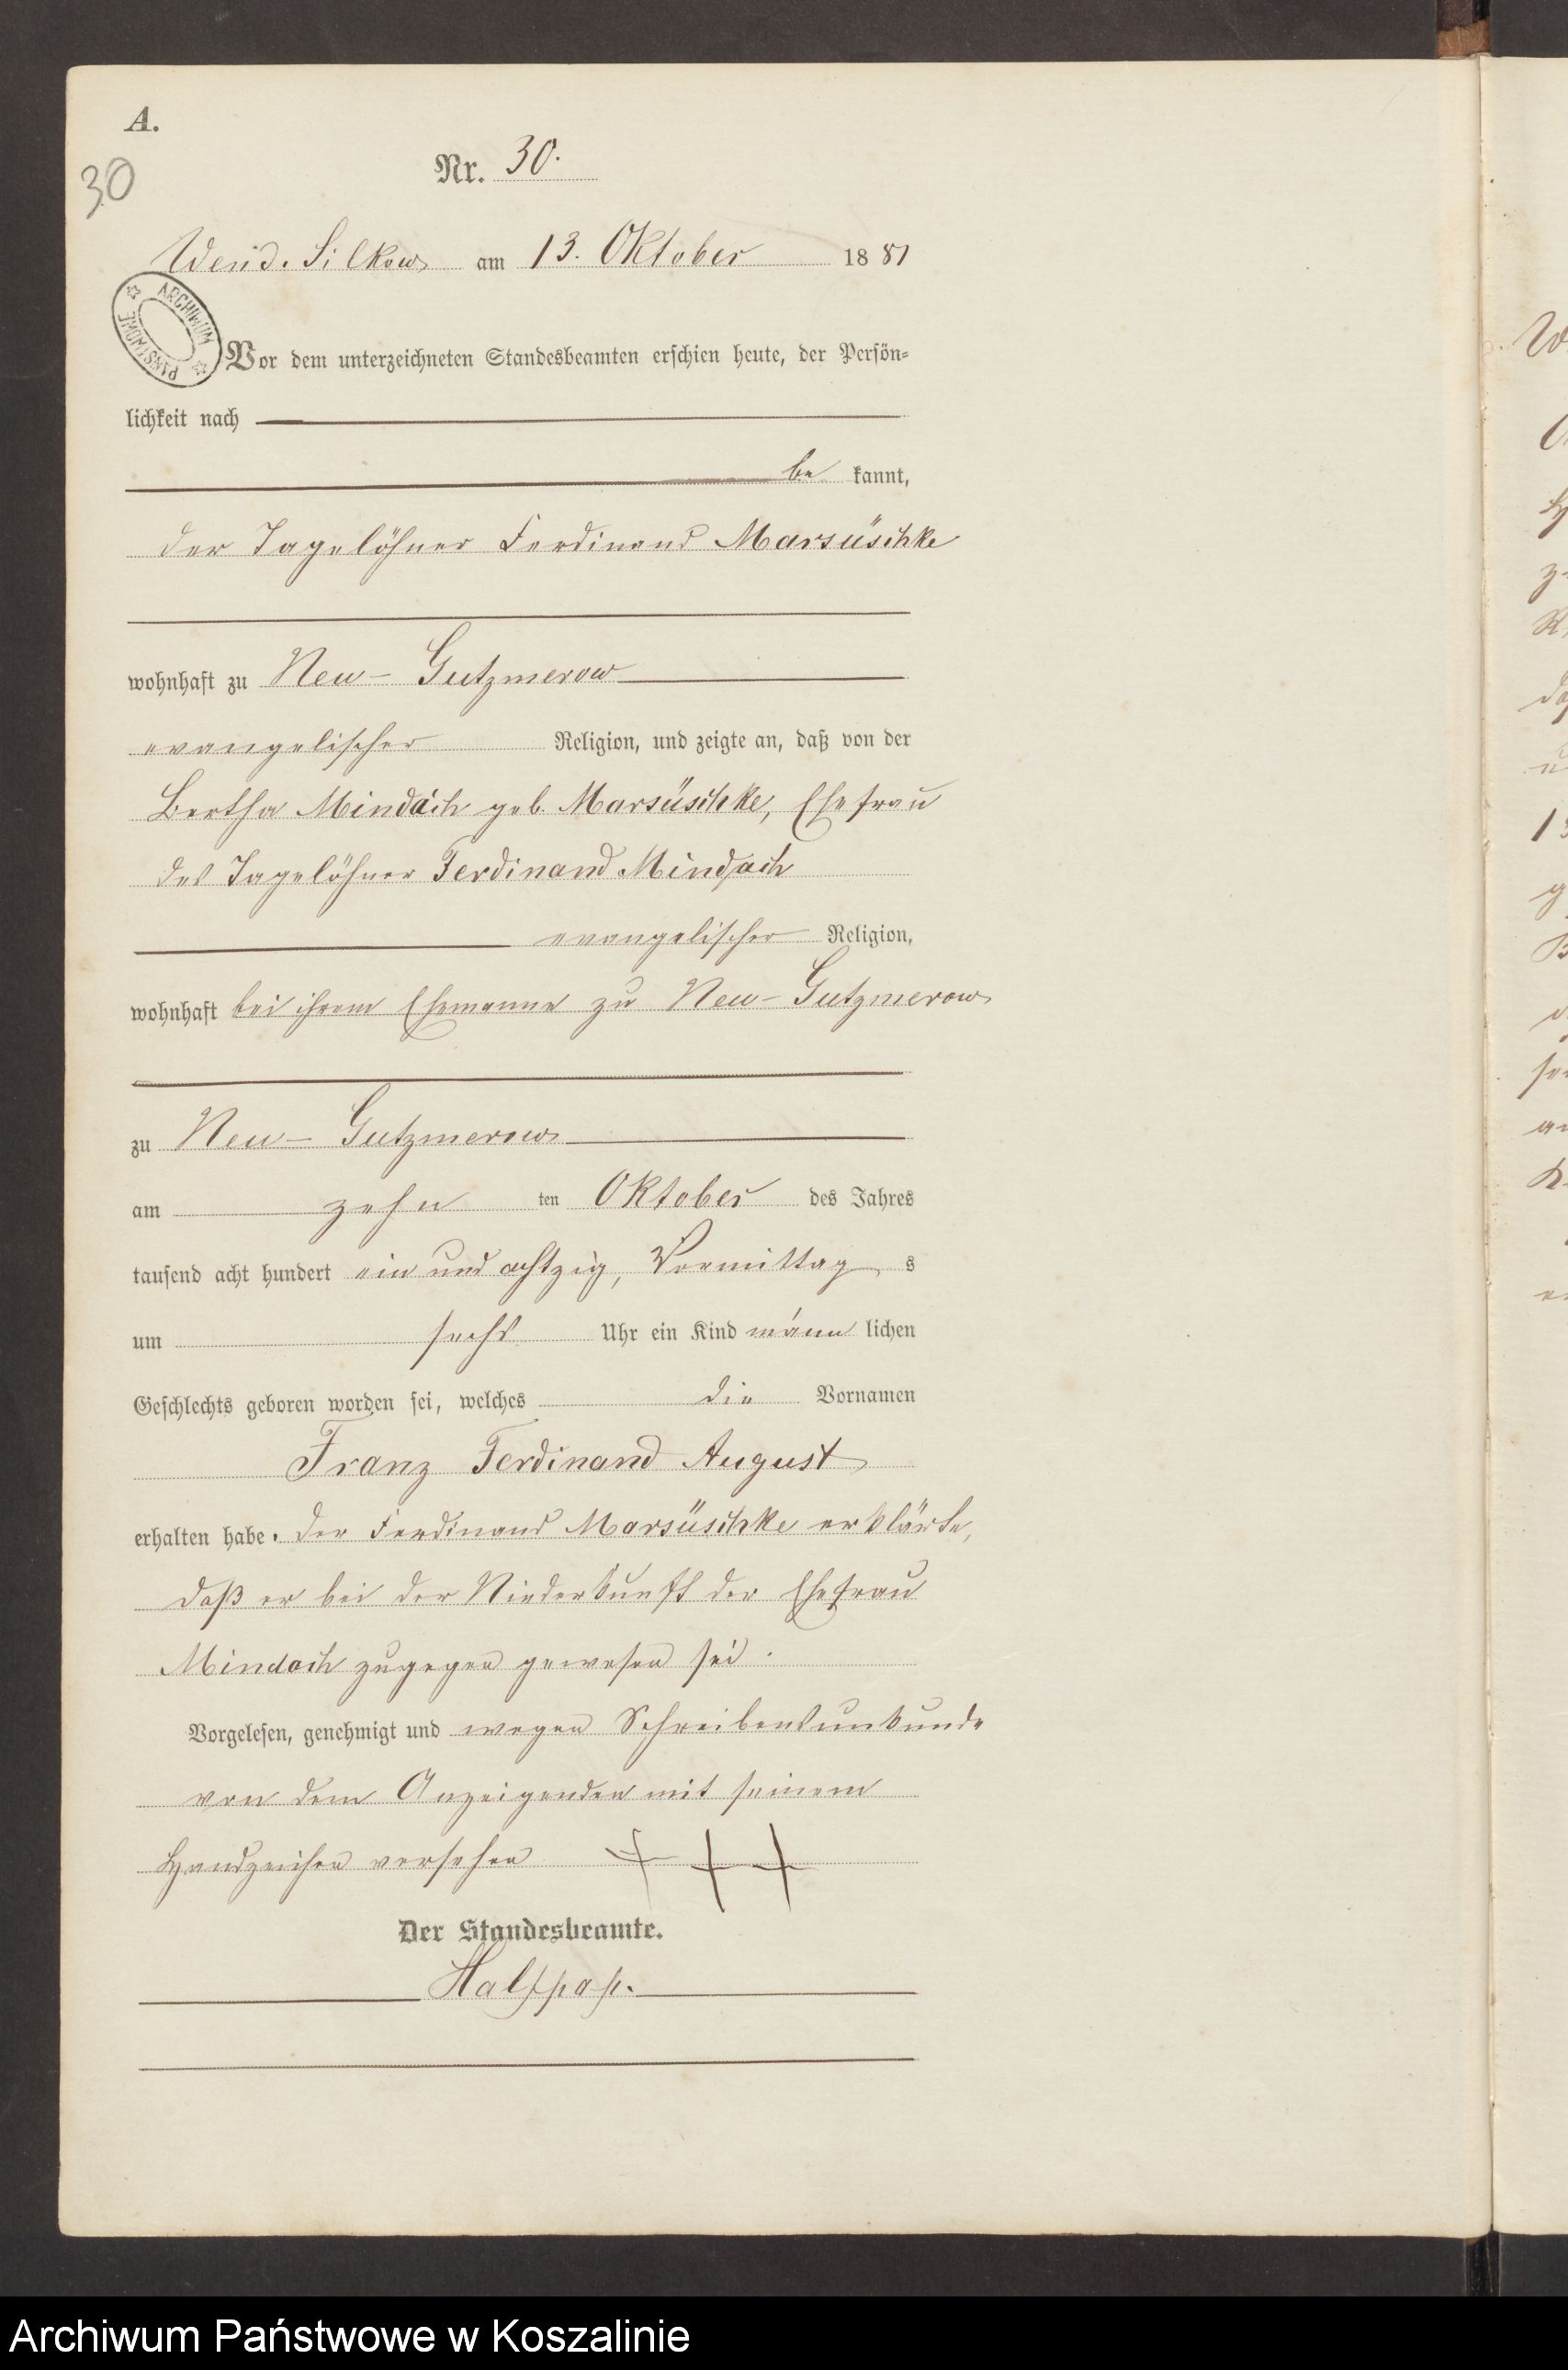 A.
30
Nr. 30.
Wend. Silkow am 13. Oktober 1881
ARCHIWUM PAŃSTWOWE
Vor dem unterzeichneten Standesbeamten erschien heute, der Persön-
lichkeit nach
be kannt,
der Tagelöhner Ferdinand Marsüschke
wohnhaft zu Neu-Gutzmerow
evangelischer Religion, und zeigte an, daß von der
Bertha Mindach geb. Marsüschke, Ehefrau
des Tagelöhner Ferdinand Mindach
evangelischer Religion,
wohnhaft bei ihrem Ehemanne zu Neu-Gutzmerow
zu Neu-Gutzmerow
am zehn ten Oktober des Jahres
tausend acht hundert ein und achtzig, Vormittag s
um sechs Uhr ein Kind männ lichen
Geschlechts geboren worden sei, welches die Vornamen
Franz Ferdinand August
erhalten habe. Der Ferdinand Marsüschke erklärte,
daß er bei der Niederkunft der Ehefrau
Mindach zugegen gewesen sei.
Vorgelesen, genehmigt und wegen Schreibensunkunde
von dem Anzeigenden mit seinem
Handzeichen versehen + + +
Der Standesbeamte.
Halfpap.
Archiwum Państwowe w Koszalinie